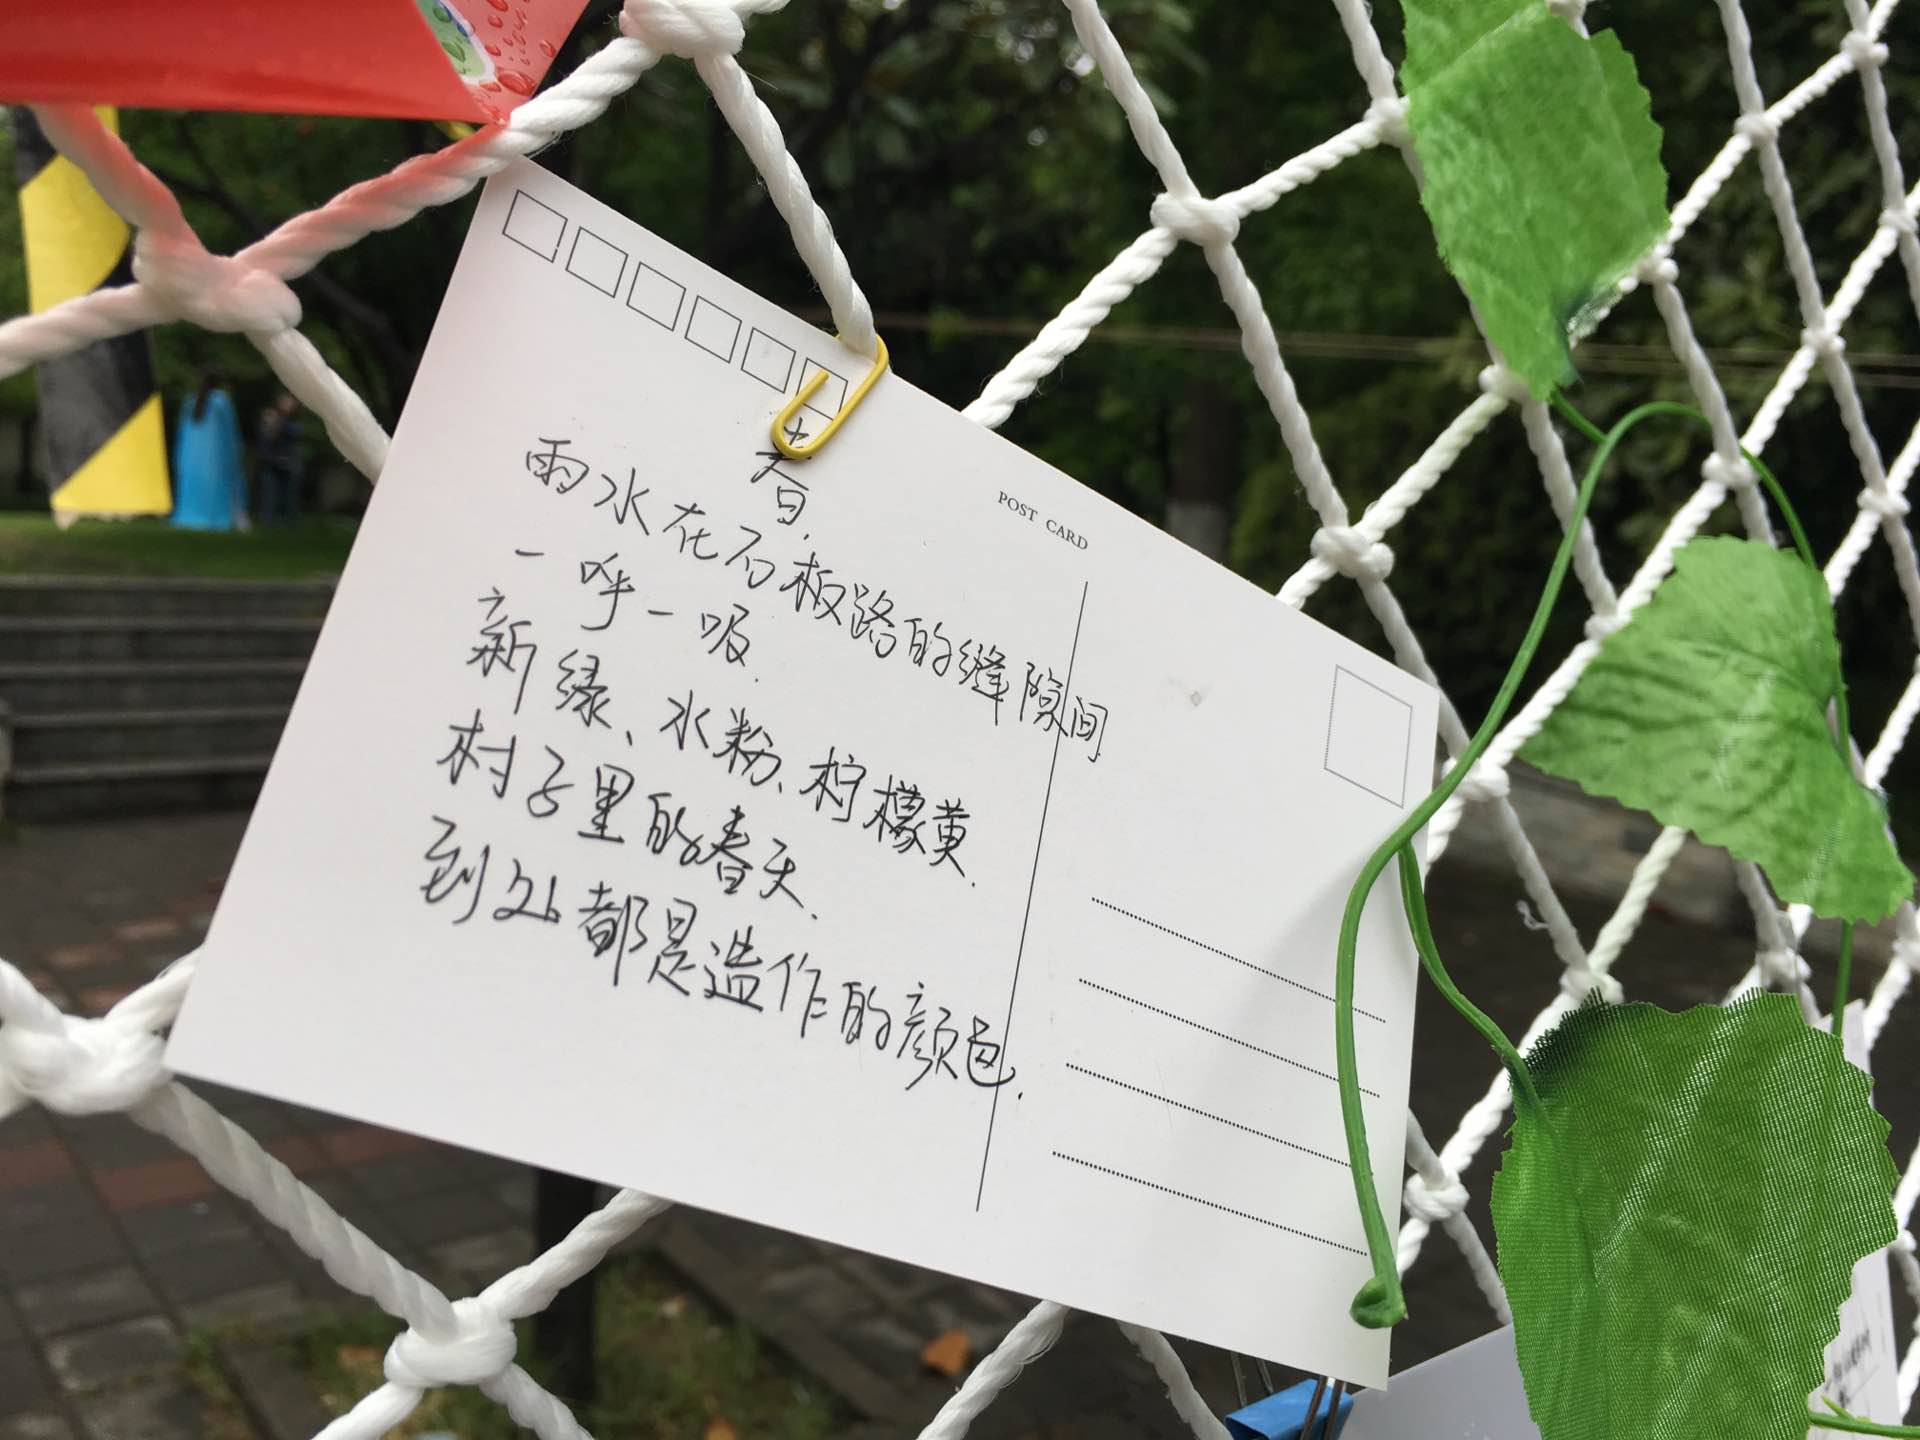 春.
雨水在石板路的缝隙间
一呼一吸.
新绿、水粉、柠檬黄.
村子里的春天.
到处都是造作的颜色.
POST CARD